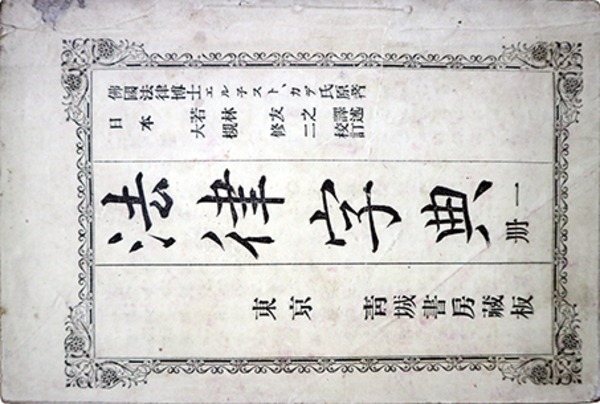 佛國法律博士エル子スト、カデ氏原著
日本
若林友之譯述
大槻修二校訂
法律字典
一冊
東京 青城書房藏板